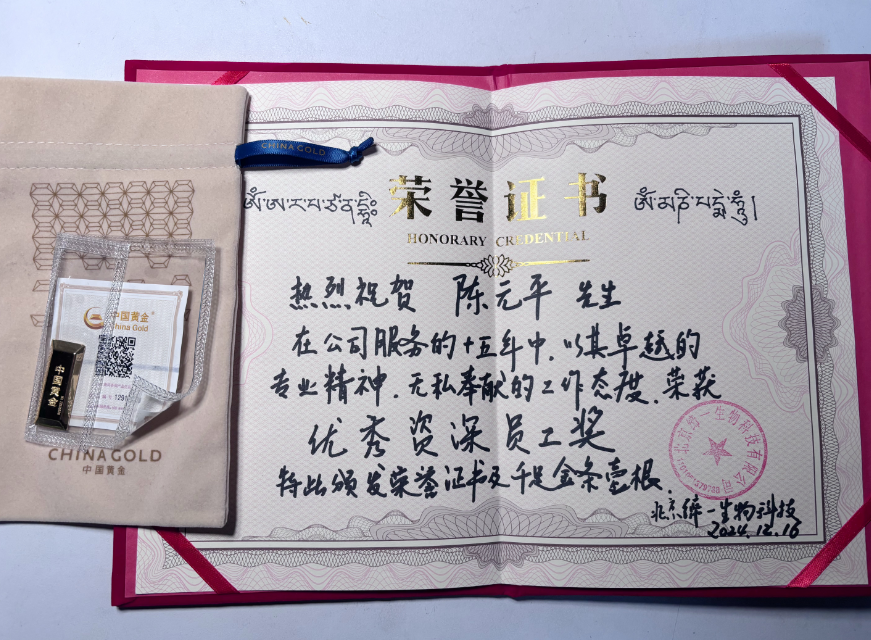 CHINA GOLD
中国黄金
China Gold
中国黄金
CHINA GOLD
中国黄金
ༀ་ཨ་ར་པ་ཙ་ན་དྷཱིཿ
荣誉证书
ༀ་མ་ཎི་པདྨེ་ཧཱུྃ།
HONORARY CREDENTIAL
热烈祝贺 陈元平 先生
在公司服务的十五年中，以其卓越的
专业精神、无私奉献的工作态度，荣获
优秀资深员工奖
特此颁发荣誉证书及千足金条壹根。
北京统一生物科技
2024.12.16